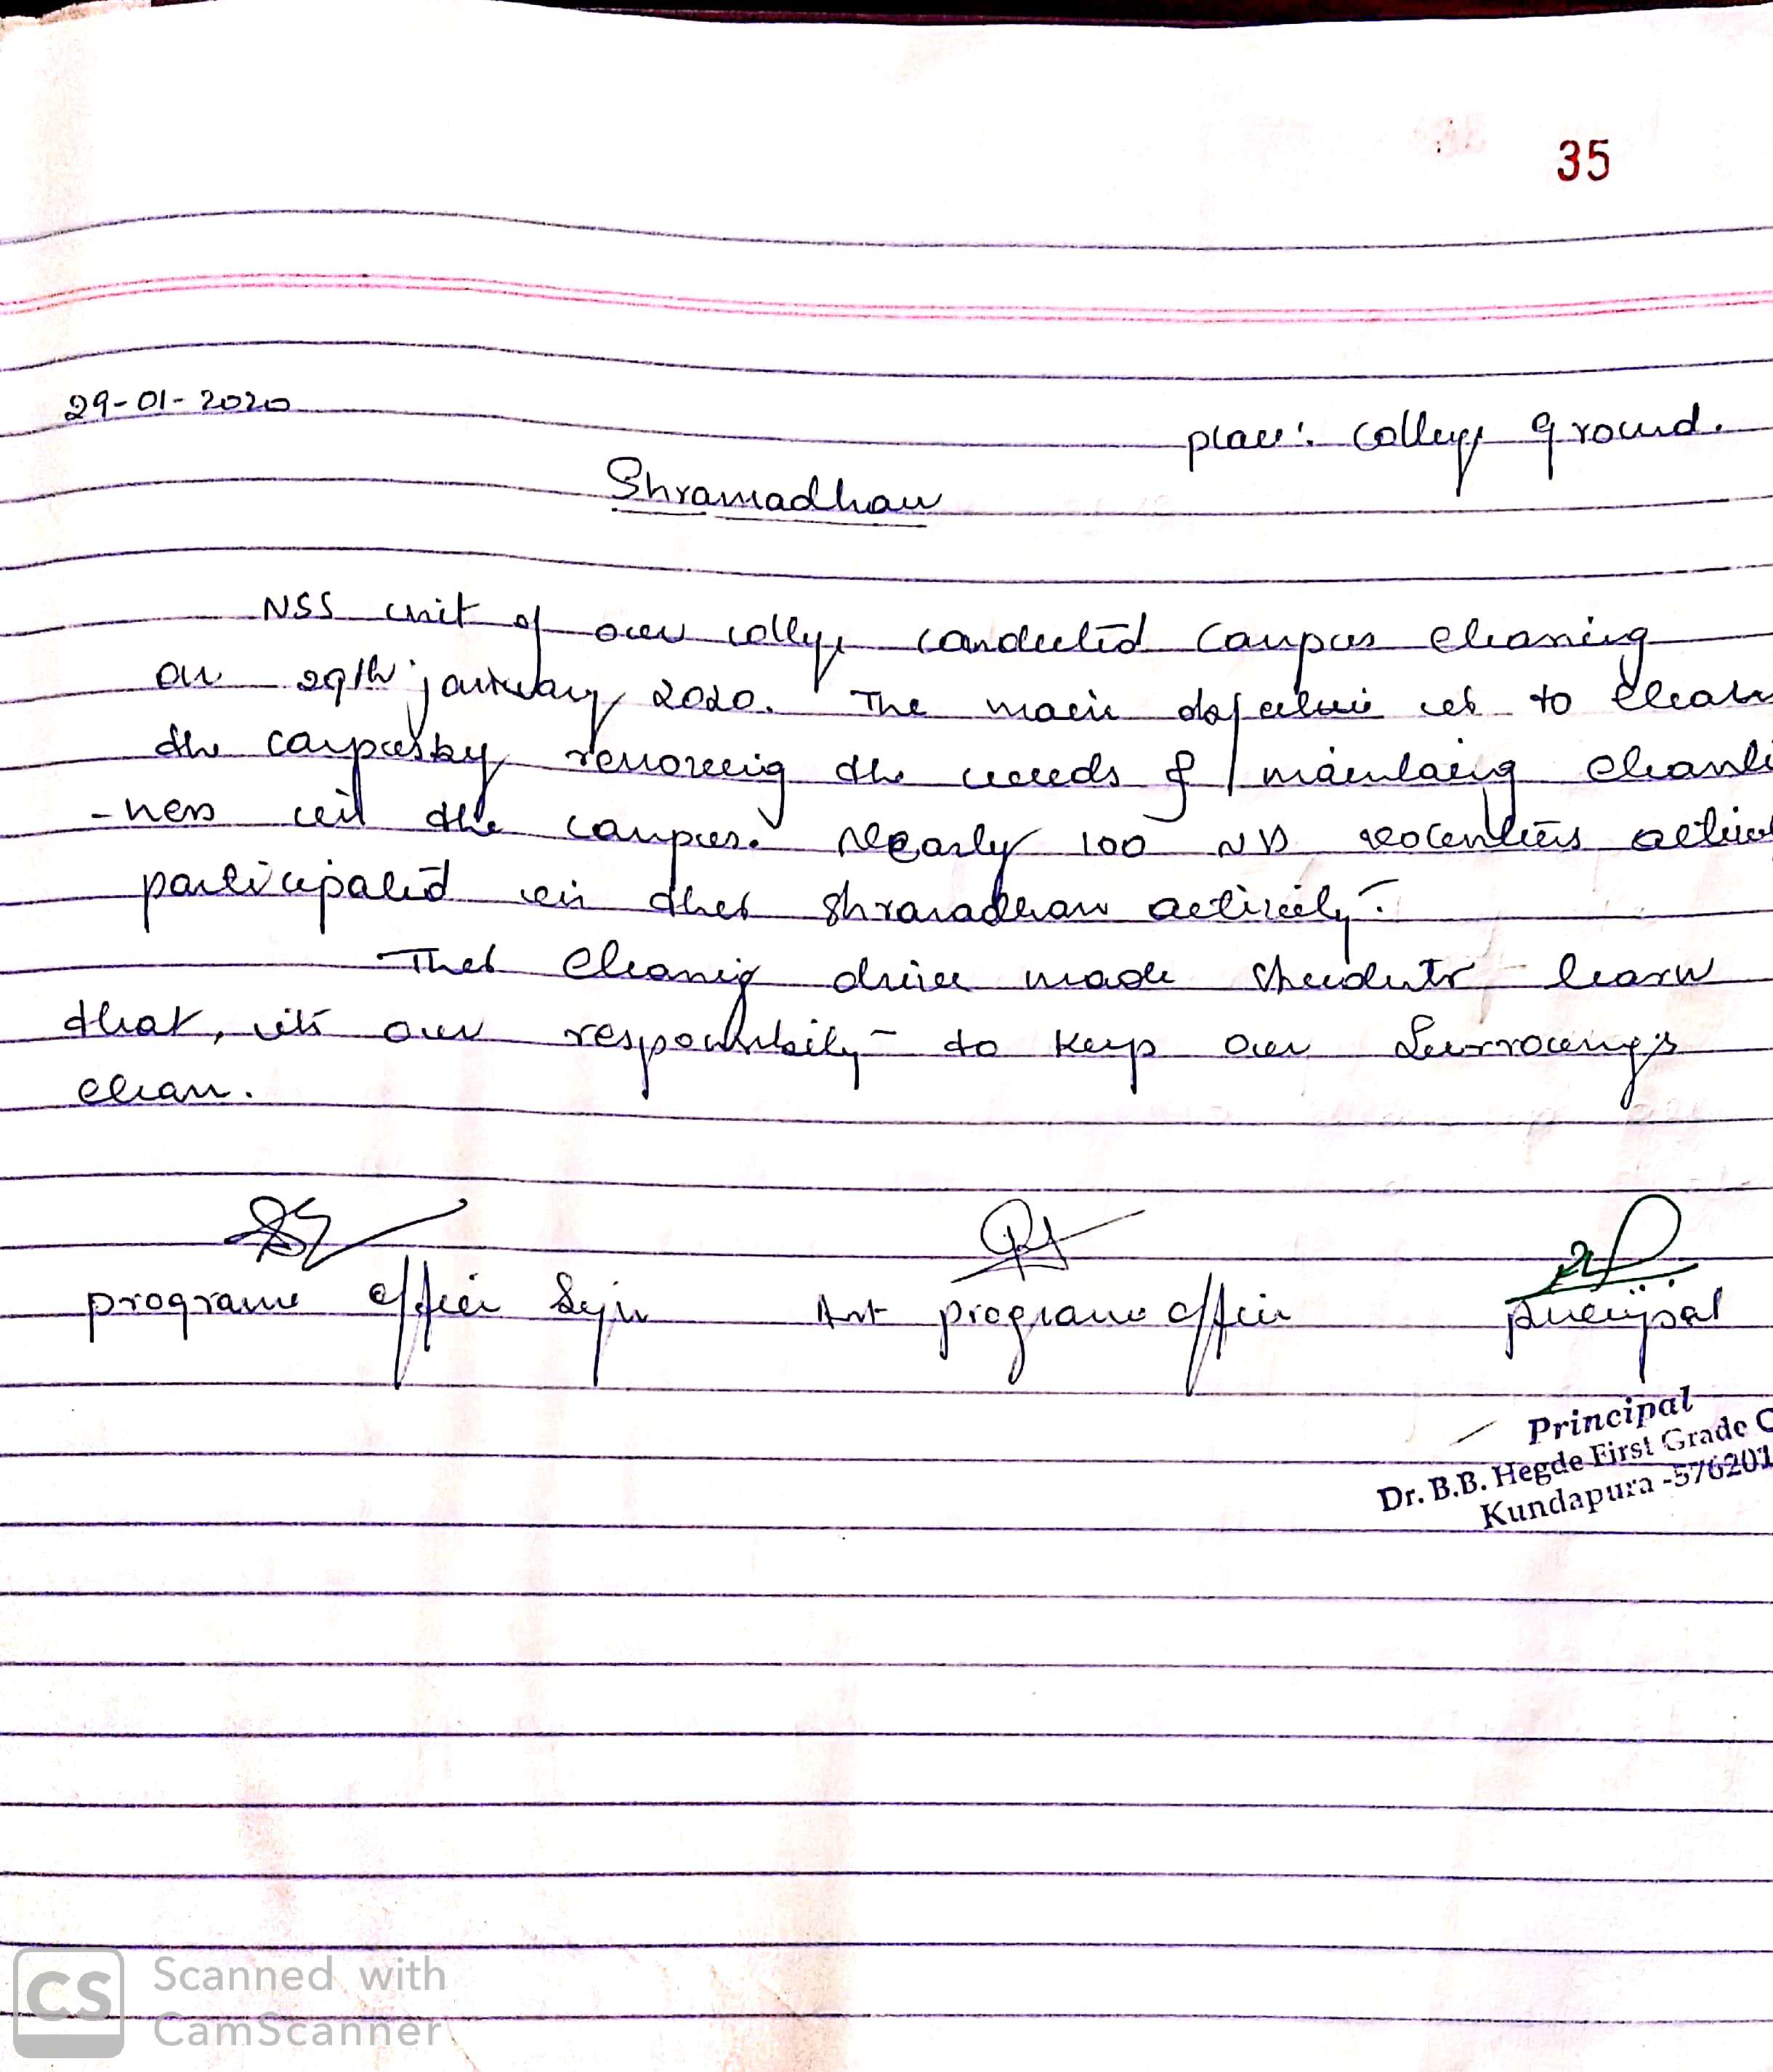 35
29-01-2020
place: College ground.
Shramadhan
NSS unit of our college conducted Campus cleaning
on 29th january 2020. The main objective is to clean
the campus by removing the weeds & maintaing cleanli
-ness in the campus. Nearly 100 NSS volenteers
participated in this shramadhan activity.
This cleaning drive made students learn
that, its our responsibility to keep our Surrouings
clean.
programe officer Sign Asst programe officer principal
Principal
Dr. B.B. Hegde First Grade C
Kundapura -576201
CS Scanned with
CamScanner